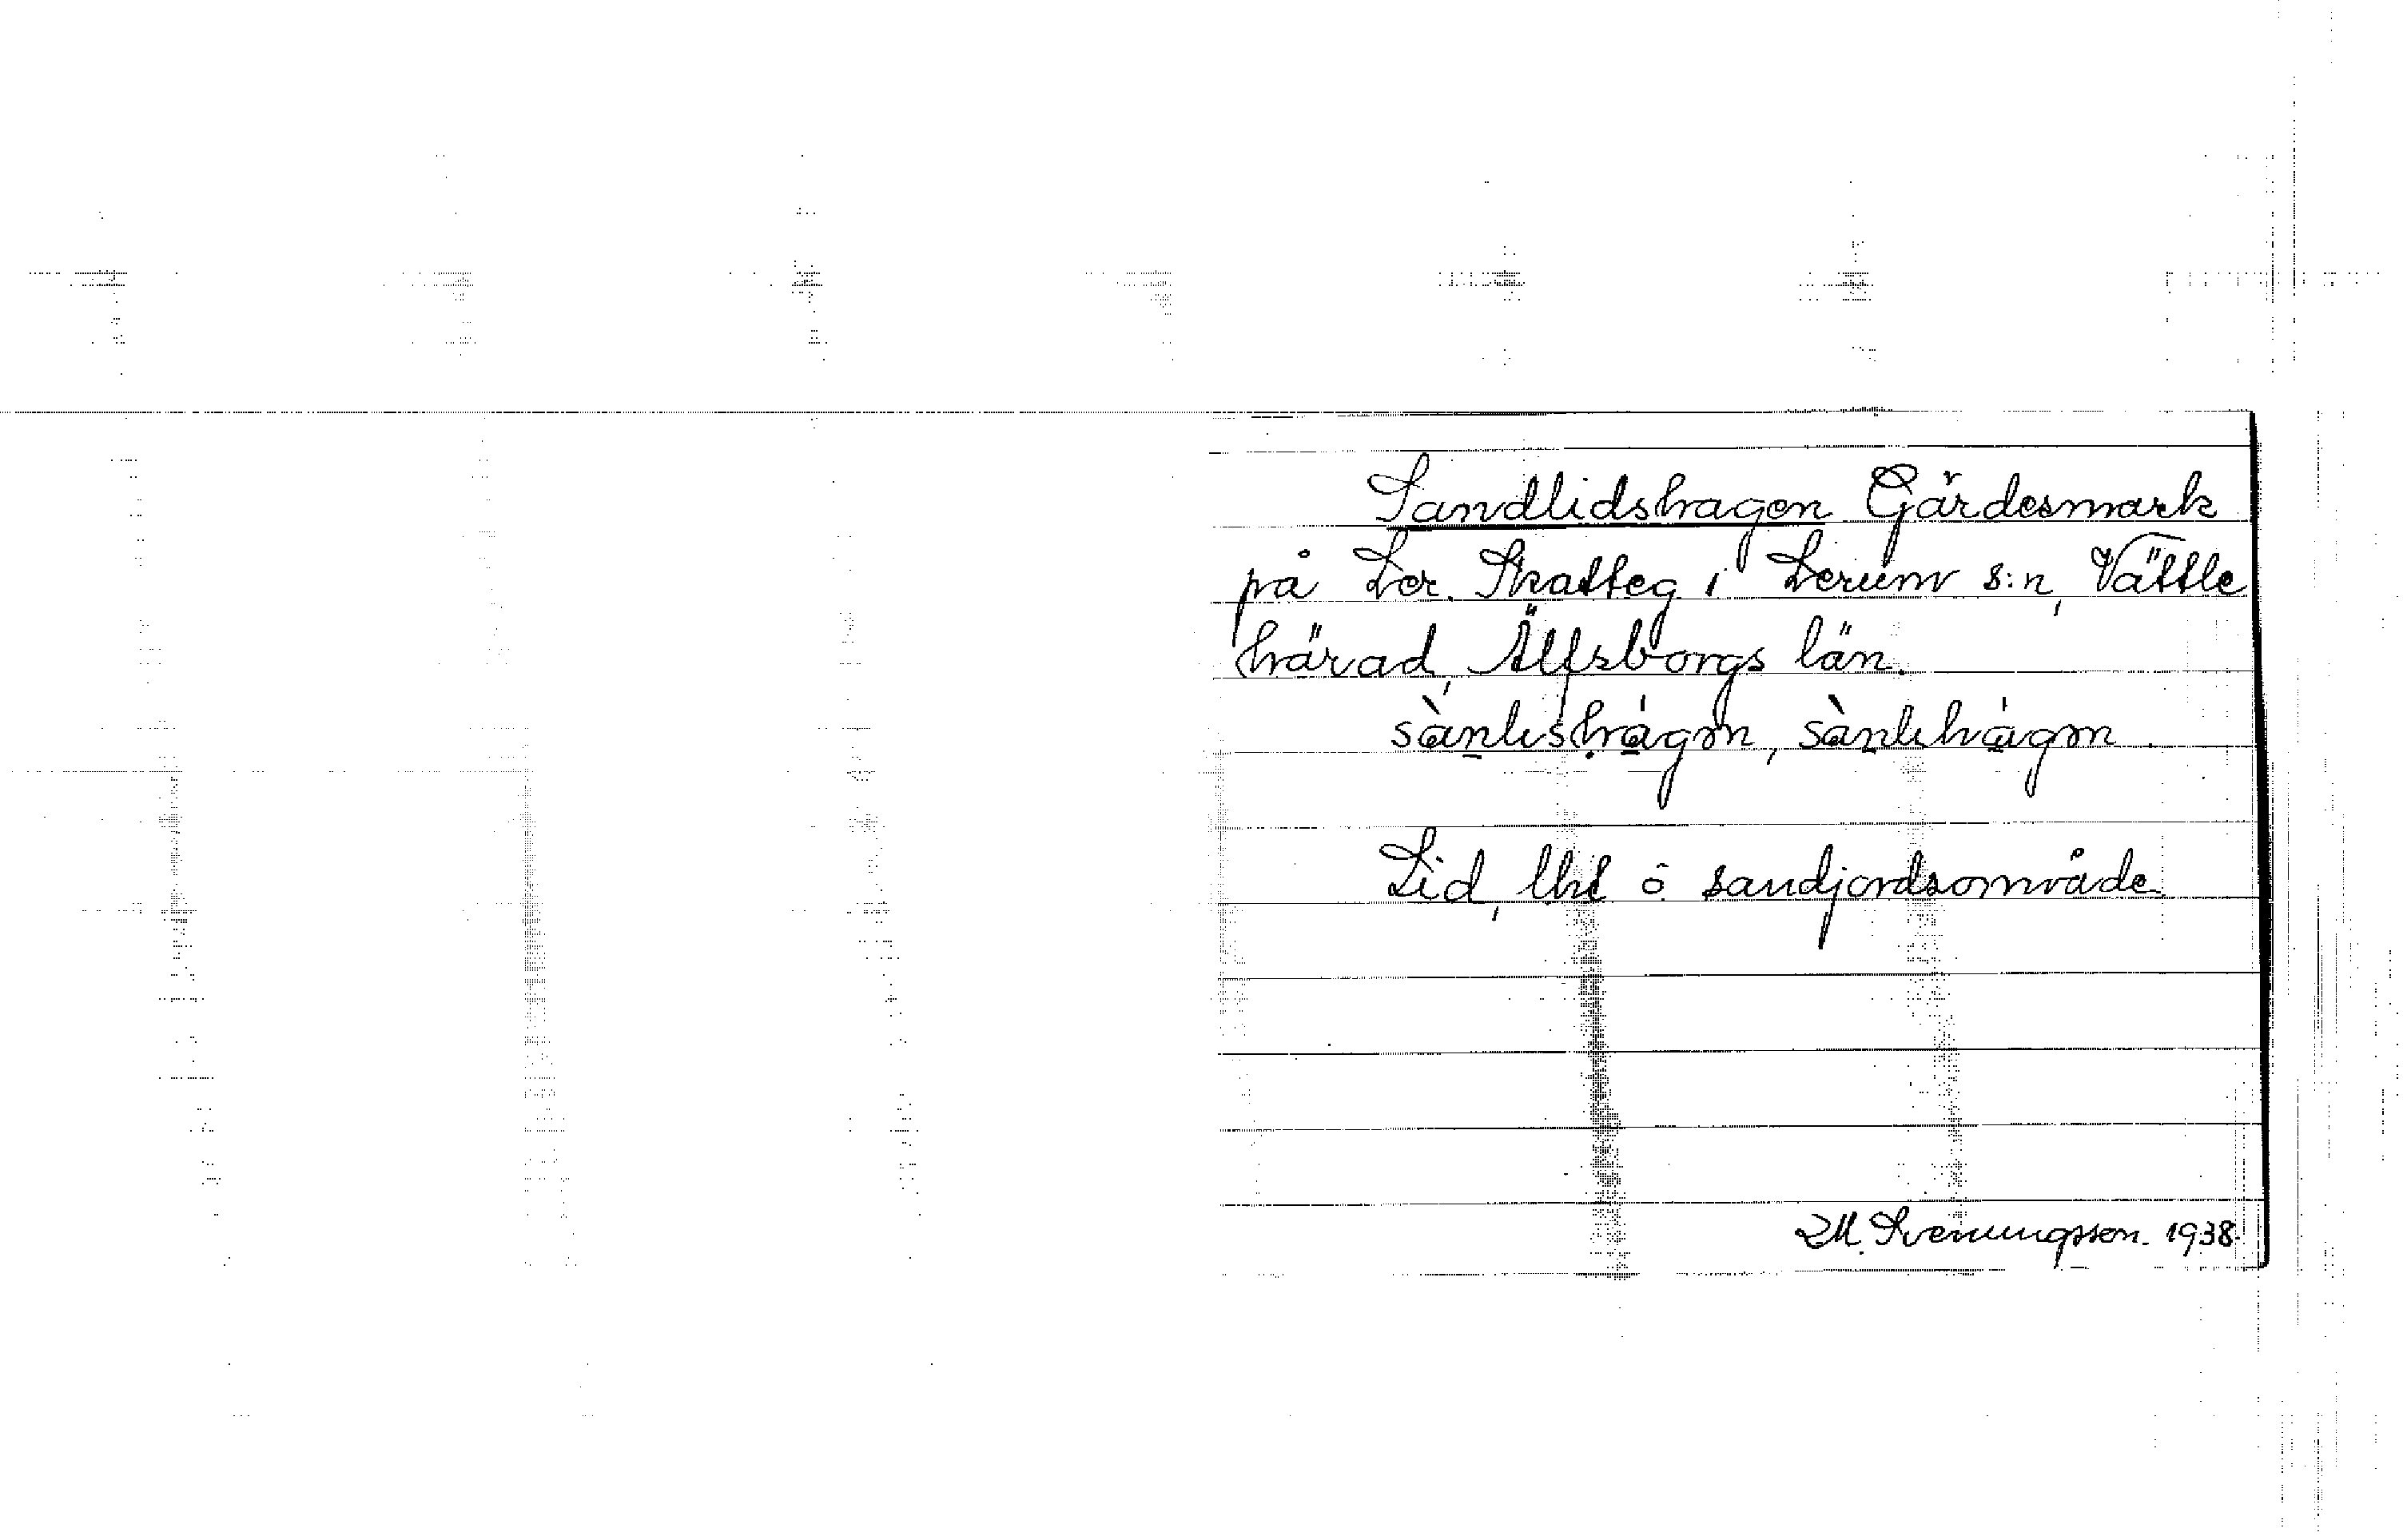 Sandlidshagen Gärdesmark
på Ler. Skatteg i Lerum s:n, Vättle
härad, Älfsborgs län.
sànlıshàgm, sànlıhàgm
Lid, lht o. sandjordsområde.
M. Svenungsson. 1938.